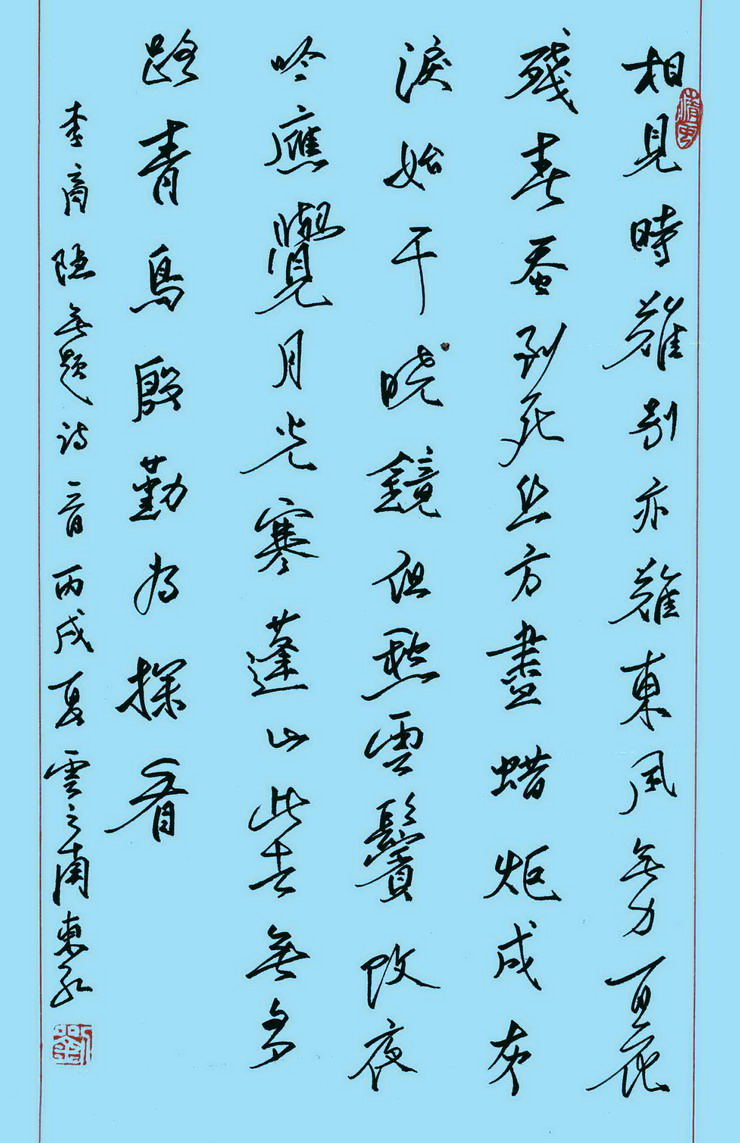 相見時難別亦難東風無力百花
殘春蚕到死丝方盡蜡炬成灰
淚始干晓鏡但愁雲鬢改夜
吟應覺月光寒蓬山此去無多
路青鳥殷勤为探看
李商隐無题诗一首丙戌夏雲之南東
劉